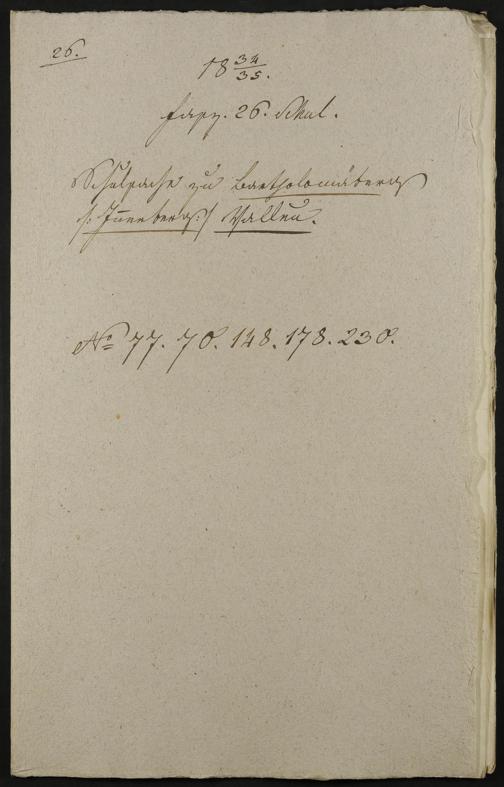 26.
18 34/35.
Fasz. 26. Schul.
Schulsache zu Bartholomäberg
/: Innerberg :/ Valleu.
No 77. 78. 148. 178. 230.